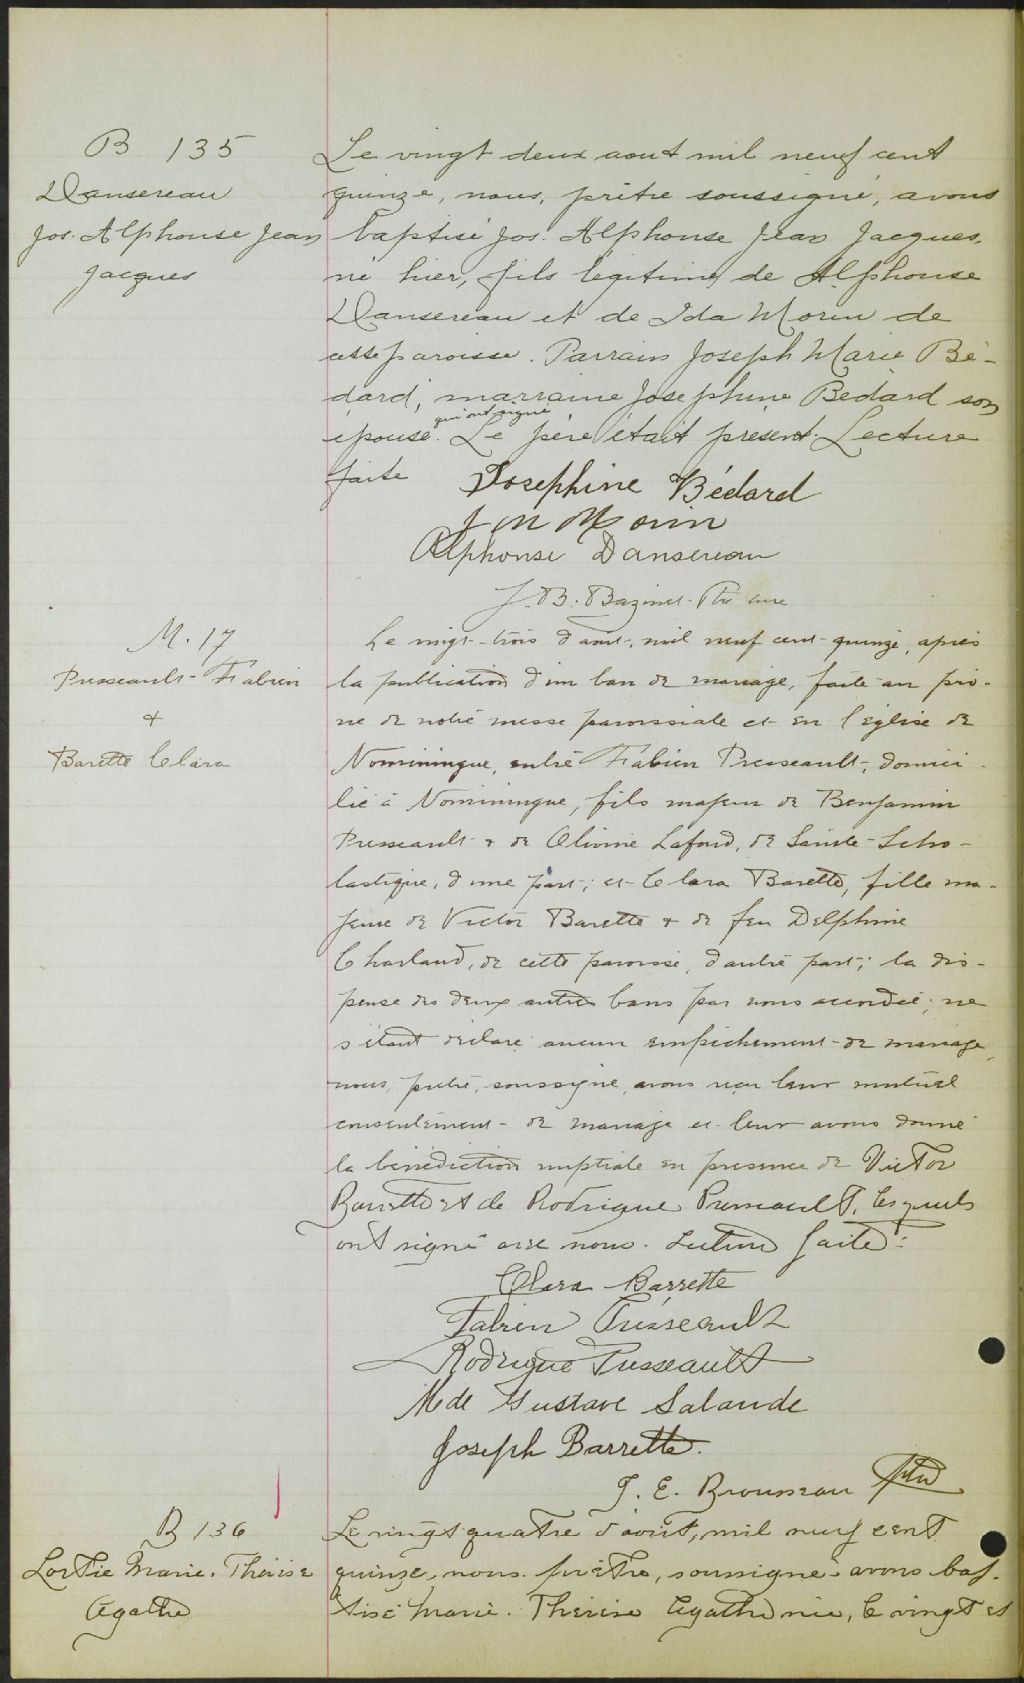 B 135
Dansereau
Jos. Alphonse Jean
Jacques
Le vingt deux aout mil neuf cent
quinze, nous, prêtre soussigné, avons
baptisé Jos. Alphonse Jean Jacques,
né hier, fils légitime de Alphonse
Dansereau et de Ida Morin de
cette paroisse. Parrain Joseph Marie Bé-
dard, marraine Josephine Bédard son
qui ont signé
épouse. Le père était présent. Lecture
faite
Josephine Bédard
J M Morin
Alphonse Dansereau
J. B. Bazinet Ptre curé
M. 17
Presseault Fabien
&
Barette Clara
Le vingt-trois d'aout, mil neuf cent quinze, après
la publication d'un ban de mariage, faite au prô-
ne de notre messe paroissiale et en l'église de
Nominingue, entre Fabien Presseault, domici-
lié à Nominingue, fils majeur de Benjamin
Presseault & de Olivine Lafond, de Sainte-Scho-
lastique, d'une part; et Clara Barette, fille ma-
jeure de Victor Barette & de feu Delphine
Charland, de cette paroisse, d'autre part; la dis-
pense des deux autres bans par nous accordée; ne
s'étant déclaré aucun empêchement de mariage,
nous, prêtre, soussigné, avons reçu leur mutuel
consentement de mariage et leur avons donné
la bénédiction nuptiale en présence de Victor
Barrette et de Rodrigue Presseault, lesquels
ont signé avec nous. Lecture faite.
Clara Barrette
Fabien Présseault
Rodrigue Presseault
Mde Gustave Lalande
Joseph Barrette.
J. E. Brousseau Ptre
B 136
Lortie Marie. Thérèse
Agathe
Le vingt quatre d'août, mil neuf cent
quinze, nous prêtre, soussigné avons bap-
tisé Marie. Thérèse Agathe née, le vingt et